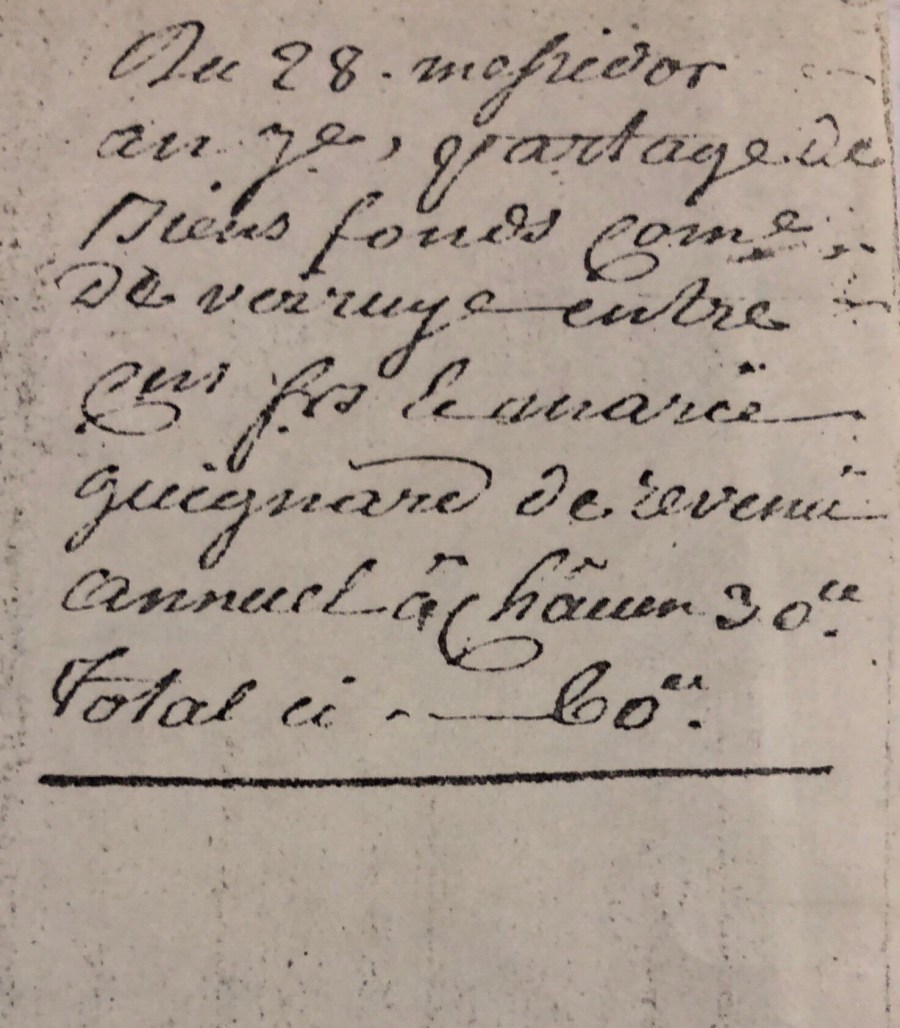 Du 28. messidor
an 7e, partage de
Biens fonds Come
De verruye entre
frs le marië
guignard de revenü
annuel â Châcun 30tt.
Total ci - 60tt.